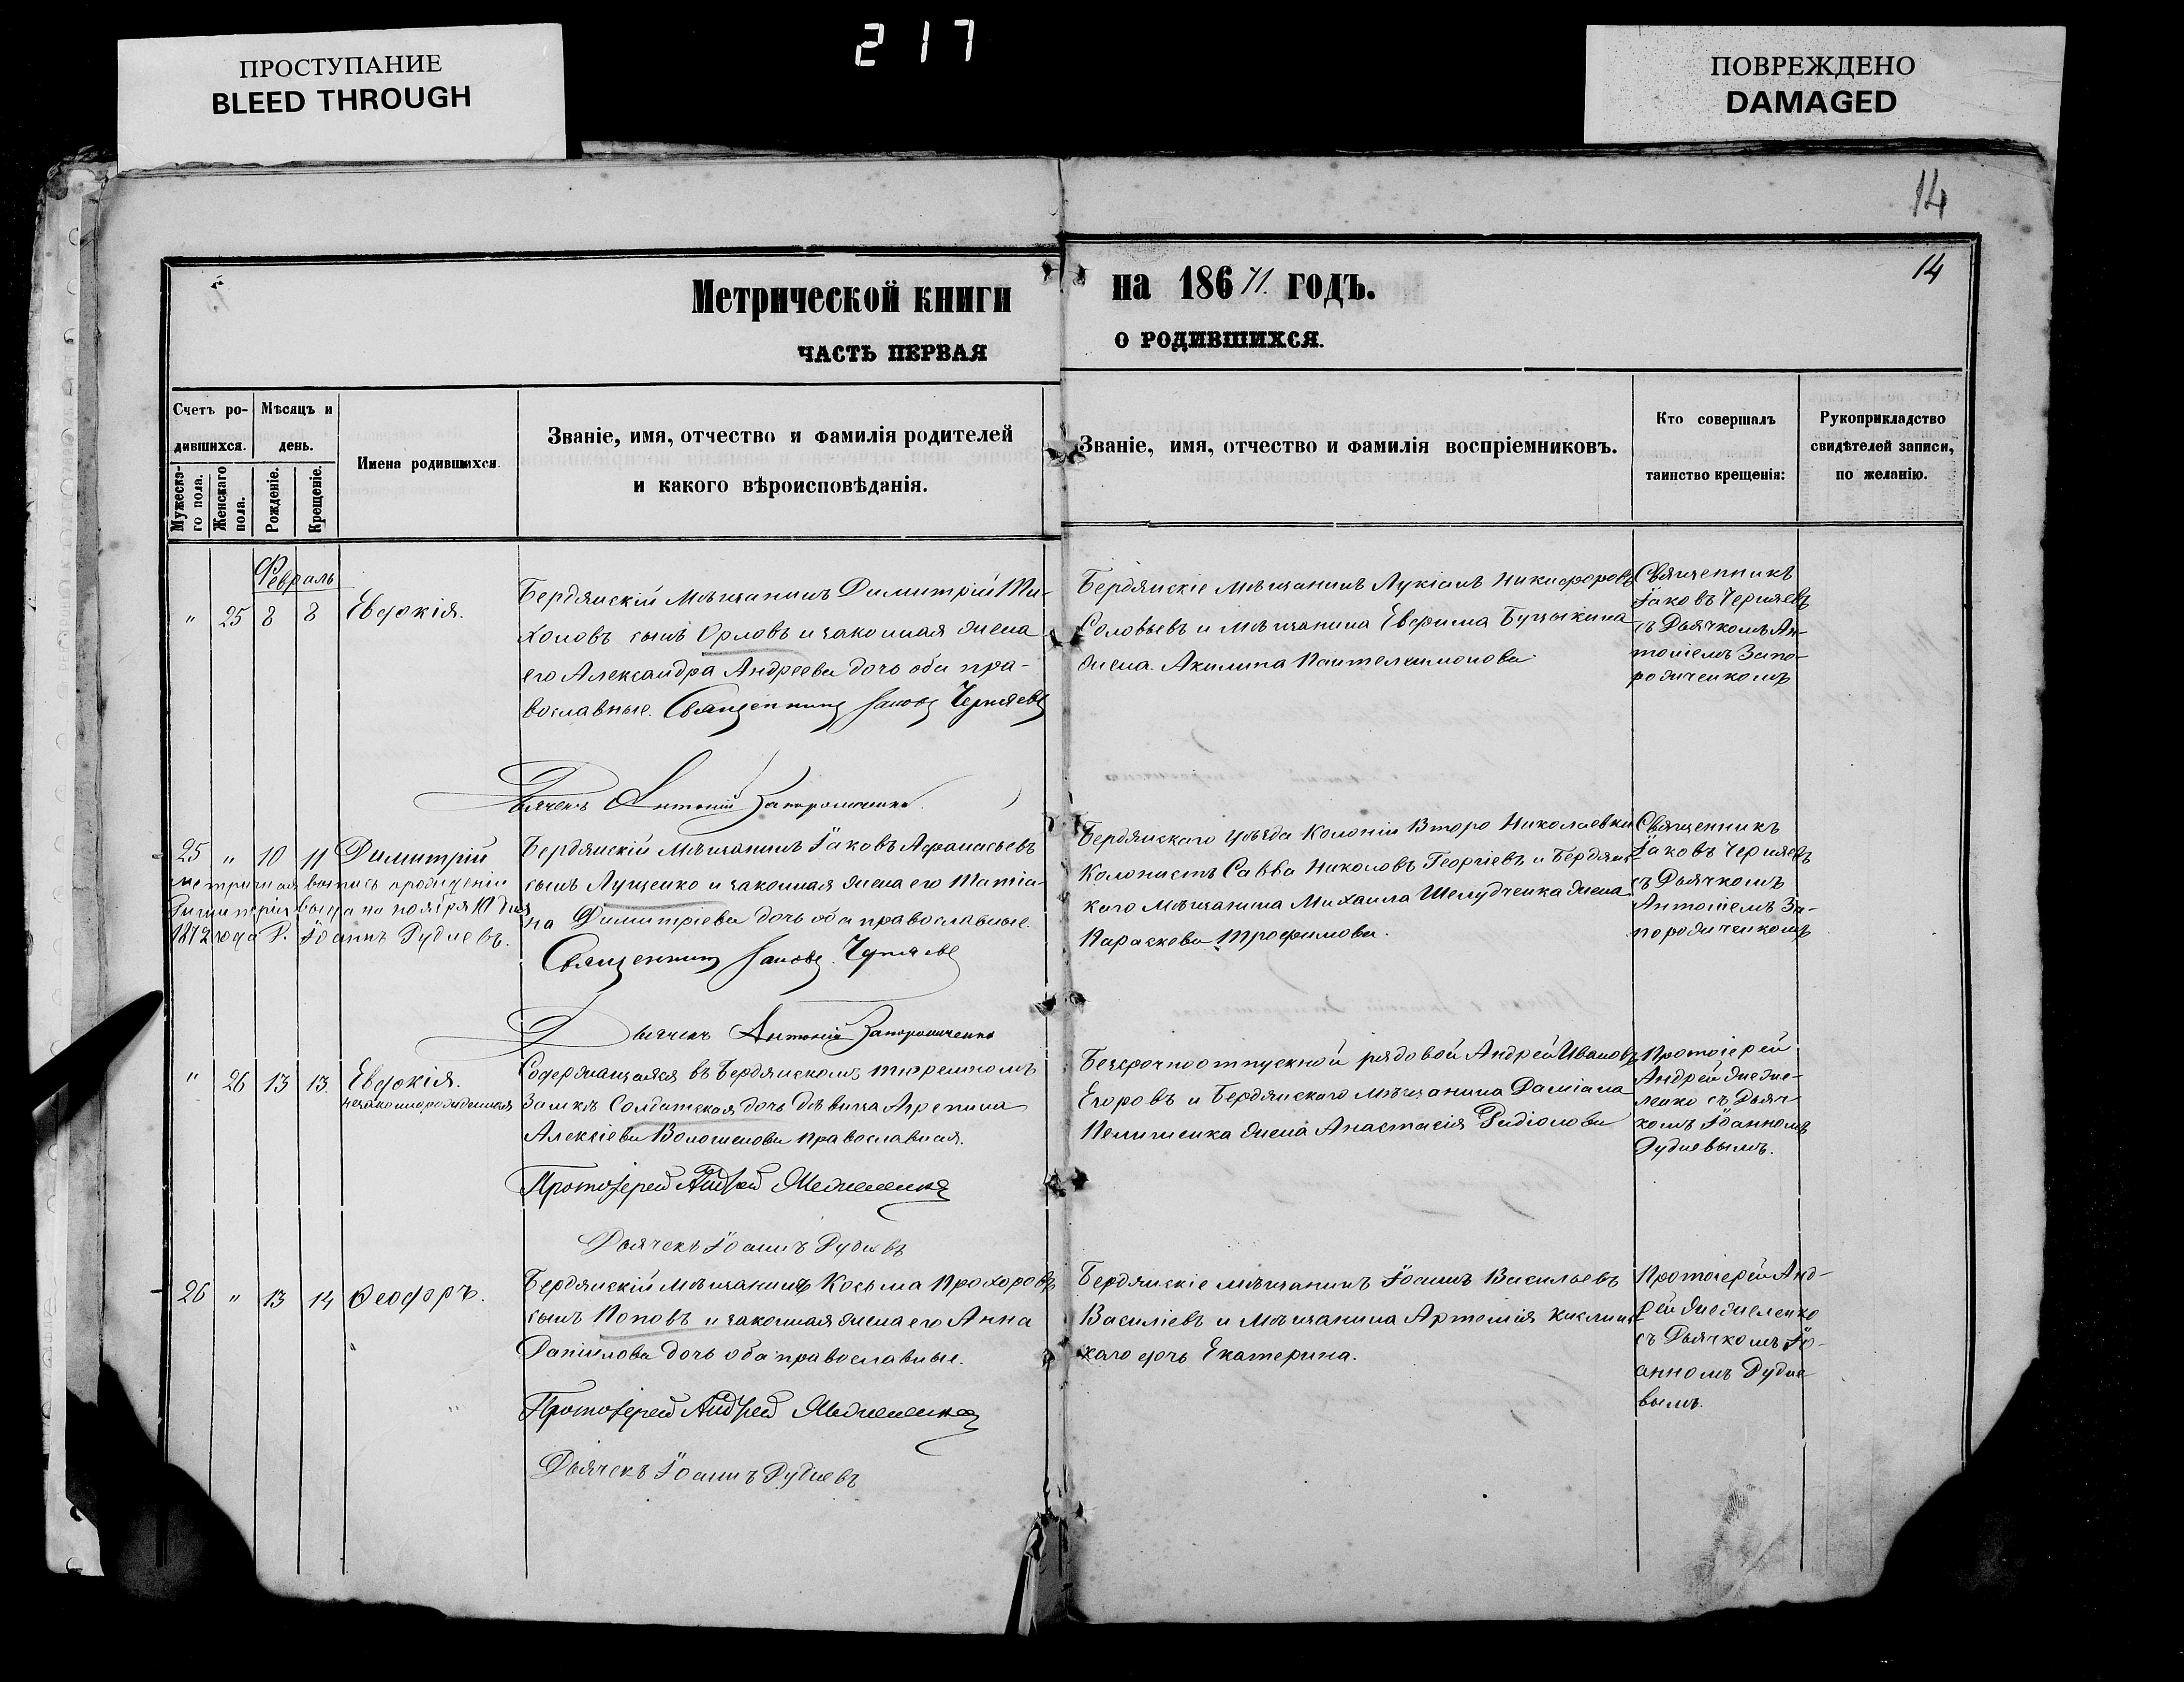 217
ПРОСТУПАНИЕ
BLEED THROUGH
ПОВРЕЖДЕНО
DAMAGED
14
14
Метрической книги
на 186 71. годъ.
ЧАСТЬ ПЕРВАЯ
О РОДИВШИХСЯ.
Счетъ ро-
дившихся.
Мужеска-
го пола.
Женскаго
пола.
Мѣсяцъ и
день.
Рожденіе.
Крещеніе.
Имена родившихся.
Званіе, имя, отчество и фамилія родителей
и какого вѣроисповѣданія.
Званіе, имя, отчество и фамилія воспріемниковъ.
Кто совершалъ
таинство крещенія:
Рукоприкладство
свидѣтелей записи,
по желанію.
Февраль
" 25 8 8 Евдокія.
Бердянскій мѣщанинъ Димитрій Ти-
хоновъ сынъ Орловъ и законная жена
его Александра Андреева дочь оба пра-
вославные. Священникъ Іаковъ Черняевъ
Дьячекъ Антоній Запорожченко
Бердянскіе мѣщанинъ Лукіанъ Никифоровъ
Соловьевъ и мѣщанина Ефрима жена
Акилина Пантелеимонова
Священникъ
Іаковъ Черняевъ
съ Дьячкомъ Ан-
тоніемъ Запо-
рожченкомъ
25 " 10 11 Димитрій
метричная выпись о рожденіи
Димитрія выдана ноября 10 дня
1872 года Іоаннъ Рудневъ.
Бердянскій мѣщанинъ Іаковъ Афанасьевъ
сынъ Луценко и законная жена его Татіа-
на Димитріева дочь оба православные.
Священникъ Іаковъ Черняевъ
Дьячекъ Антоній Запорожченко
Бердянскаго уѣзда Колоніи Второ Николаевки
Колонистъ Савва Николовъ Георгіевъ и Бердянс
каго мѣщанина Михаила Шелудченка жена
Параскева Трофимова.
Священникъ
Іаковъ Черняевъ
съ Дьячкомъ
Антоніемъ За-
порожченкомъ
" 26 13 13. Евдокія.
незаконнорожденная
Содержащаяся въ Бердянскомъ тюремномъ
замкѣ Солдатская дочь дѣвица Агрепина
Алексіева Волошенова православная.
Протоіерей Андрей
Дьячекъ Іоаннъ Рудневъ
Безсрочноотпускной рядовой Андрей Ивановъ
Егоровъ и Бердянскаго мѣщанина Даміана
жена Анастасія Родіонова
Протоіерей
Андрей
съ Дьяч-
комъ Іоанномъ
Рудневымъ.
26 " 13 14 Ѳеодоръ.
Бердянскій мѣщанинъ Косьма Прохоровъ
сынъ Поповъ и законная жена его Анна
Данилова дочь оба православные.
Протоіерей Андрей
Дьячекъ Іоаннъ Рудневъ
Бердянскіе мѣщанинъ Іоаннъ Васильевъ
Василіевъ и мѣщанина Артемія
каго дочь Екатерина.
Протоіерей Анд-
рей
съ Дьячкомъ Іо-
анномъ Рудне-
вымъ.